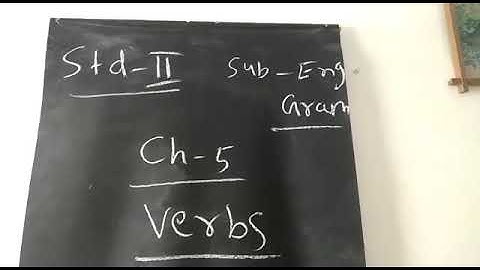 Std-II
Sub-Eng
Gram
Ch-5
Verbs